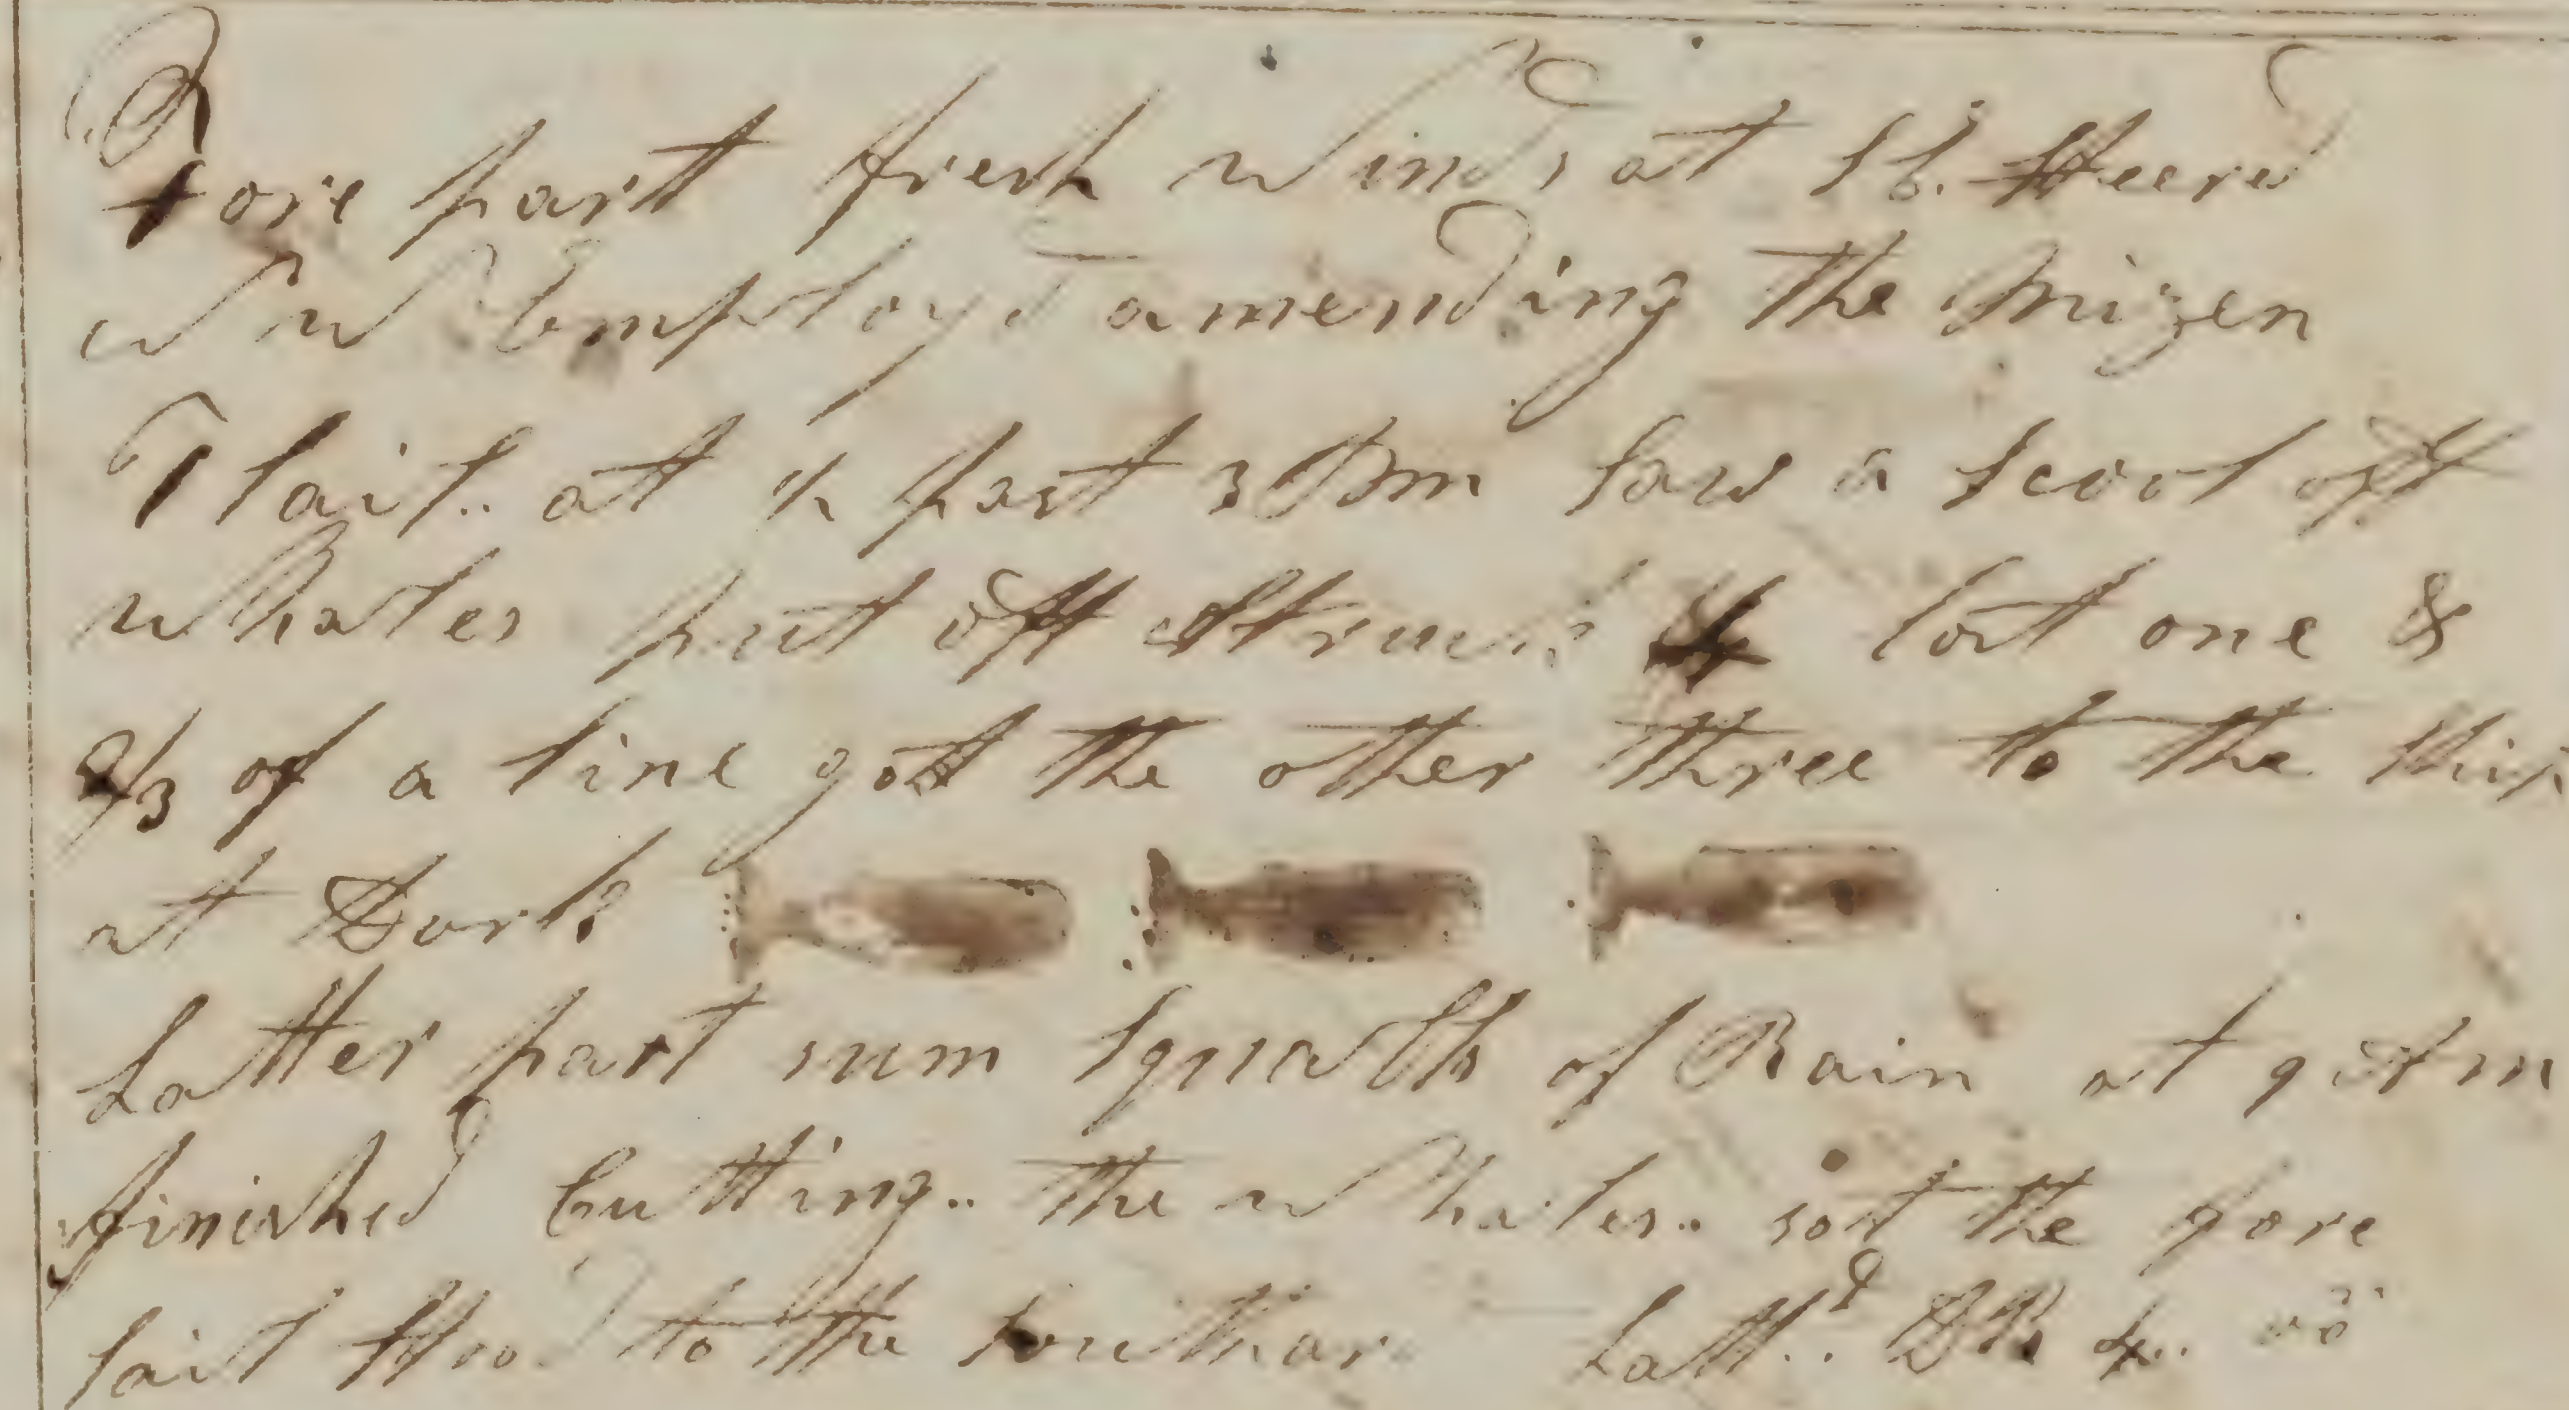 Fore part fresh winds at SE. Steerd
W N W Employd amending the Mizen
T Sail.. at ½ past 3 Pm saw a scool off
whales put off struck 4 lost one &
2/3 of a line gott the other three to the ship
at Dark
Latter part sum squalls of Rain at 9 Am
finished Cutting.. the whales.. sot the fore
sail stood to the southar Latt..